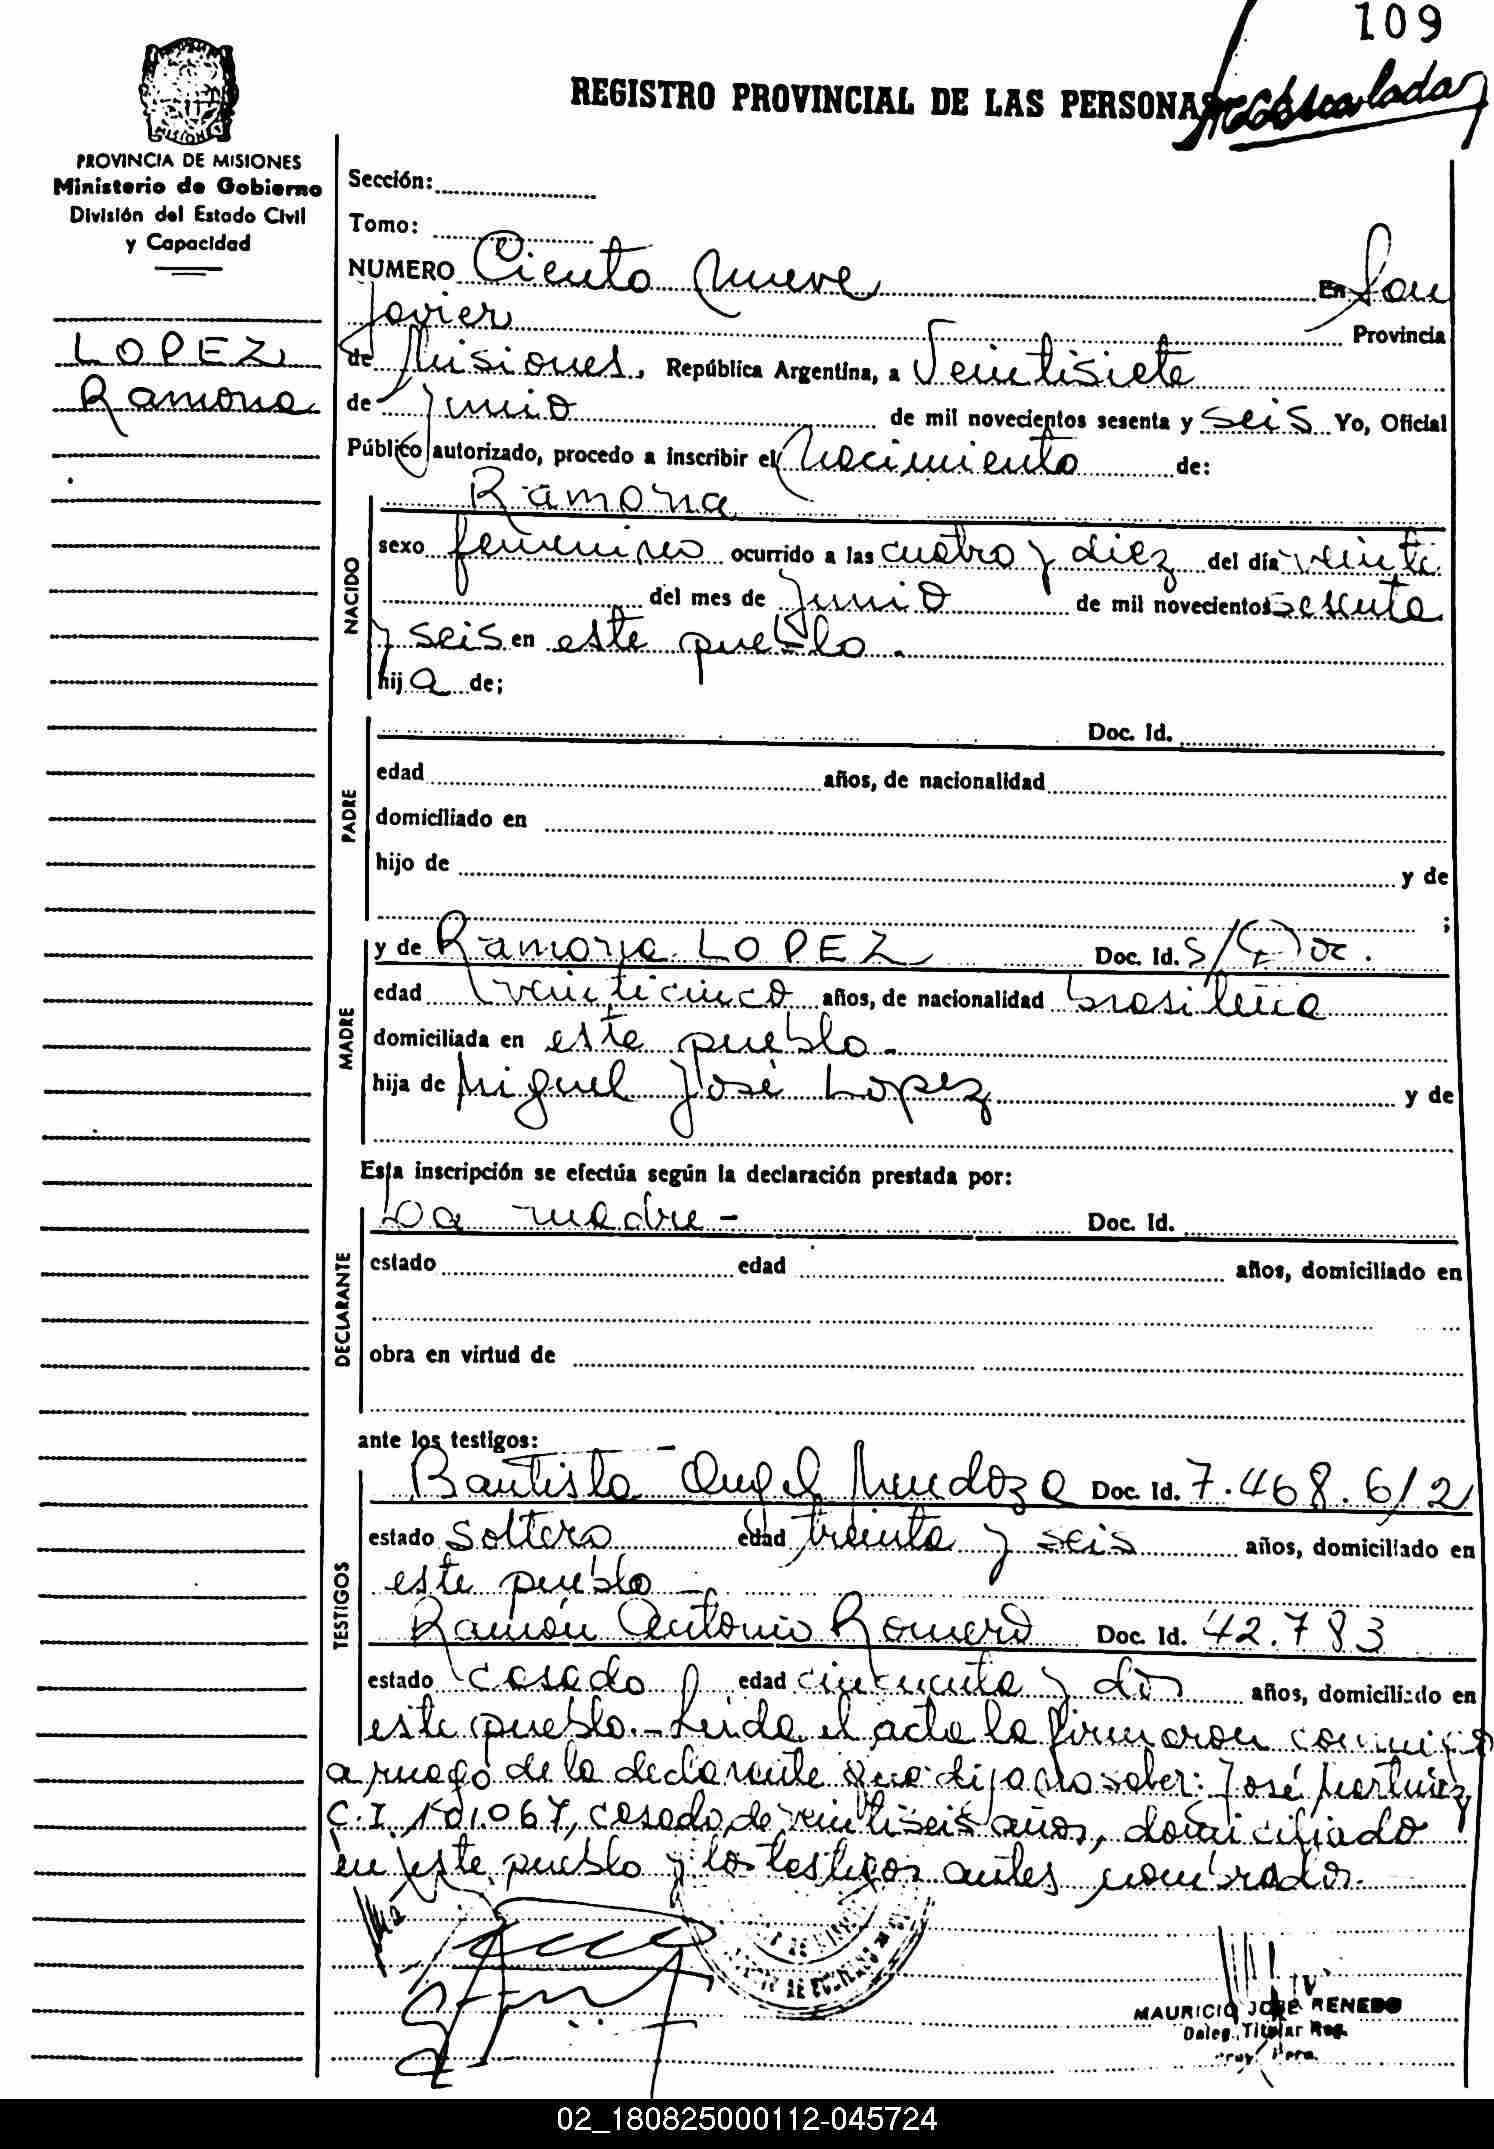 109
REGISTRO PROVINCIAL DE LAS PERSONAS
MISIONES
PROVINCIA DE MISIONES
Ministerio de Gobierno
División del Estado Civil
y Capacidad
LOPEZ
Ramona
Sección:
Tomo:
NUMERO Ciento Nueve En San
Javier Provincia
de Misiones, República Argentina, a Veintisiete
de Junio de mil novecientos sesenta y seis Yo, Oficial
Público autorizado, procedo a inscribir el Nacimiento de:
NACIDO
Ramona
sexo femenino ocurrido a las cuatro y diez del día veinte
del mes de Junio de mil novecientos sesenta
y seis en este pueblo.
hija de;
PADRE
Doc. Id.
edad años, de nacionalidad
domiciliado en
hijo de y de
;
MADRE
y de Ramona LOPEZ Doc. Id. S/Doc.
edad veinticinco años, de nacionalidad brasileña
domiciliada en este pueblo.-
hija de Miguel José Lopez y de
Esta inscripción se efectúa según la declaración prestada por:
DECLARANTE
La madre - Doc. Id.
estado edad años, domiciliado en
obra en virtud de
ante los testigos:
TESTIGOS
Bautista Angel Mendoza Doc. Id. 7.468.612
estado Soltero edad treinta y seis años, domiciliado en
este pueblo -
Ramón Antonio Romero Doc. Id. 42.783
estado casado edad cincuenta y dos años, domiciliado en
este pueblo.- Leida el acta la firmaron conmigo
a ruego de la declarante que dijo no saber: José Martinez
C.I. 101.067, casado, de veintiseis años, domiciliado
en este pueblo y los testigos antes nombrados.
MAURICIO JOSE RENEDO
Deleg. Titular Reg.
02_180825000112-045724